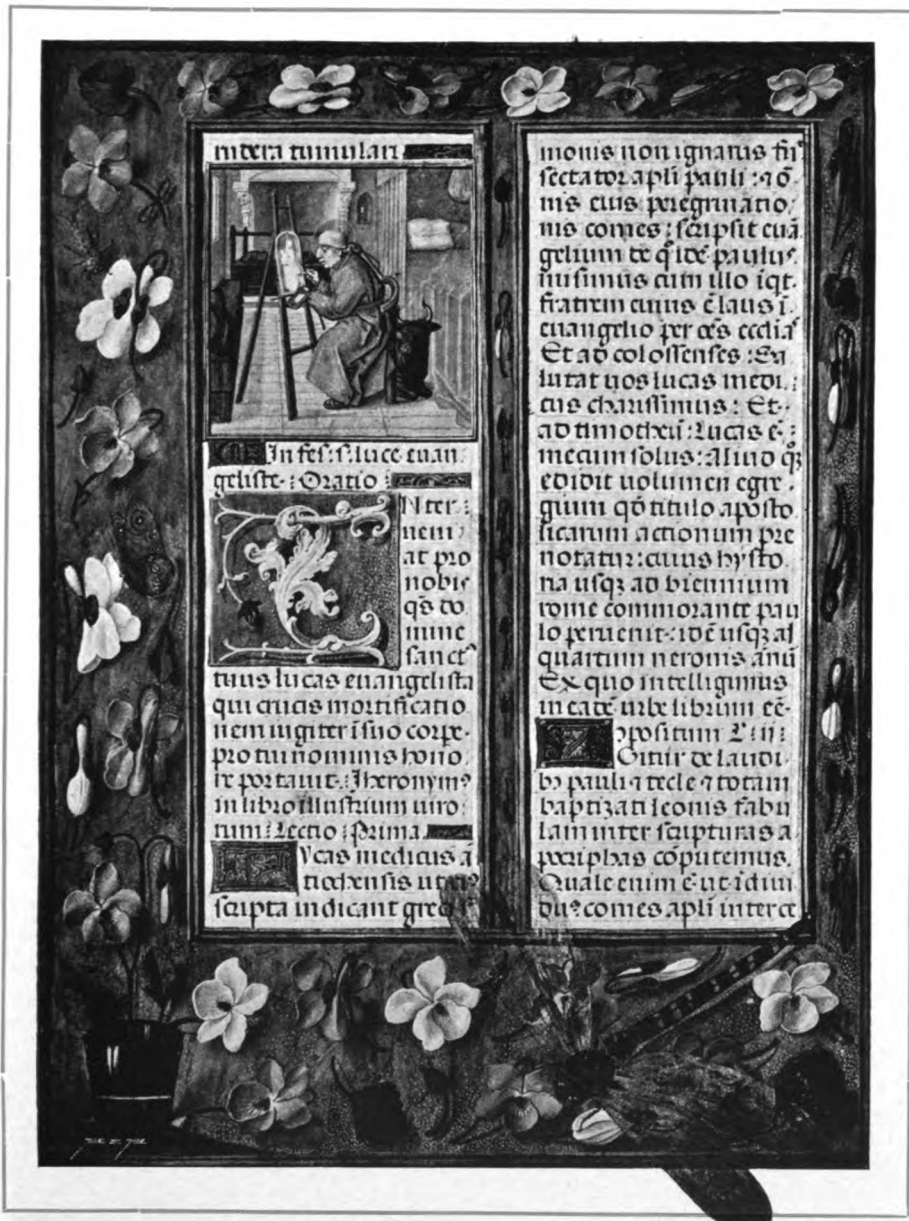 in dera tumulari
In fes: s: luce euan
geliste: Oratio:
Nter
ueni
at pro
nobis
qs do
mine
sanct⁹
tuus lucas euangelista
qui crucis mortificatio
nem iugiter i suo corpe
pro tui nominis hono
re portauit: Iheronym⁹
in libro illustrium uiro
rum: Lectio: Prima
Vcas medicus ā
tiochensis ut ei⁹
scripta indicant greci
monis non ignarus fu
sectator apli pauli: ⁊ õ
nis eius peregrinatio
nis comes: scripsit euā
gelium de q̃ idē paulus
misimus cum illo iqt
fratrem cuius ē laus ī
euangelio per oēs ecclias
Et ad colossenses: Sa
lutat uos lucas medi
cus charissimus: Et
ad timotheū: Lucas ē
mecum solus: Aliud q̃
edidit uolumen egre
gium qõ titulo aposto
licarum actionum pre
notatur: cuius hysto
ria usq̃ ad biennium
rome commorante pau
lo peruenit: idē usq̃ a
quartum neronis annū
Ex quo intelligimus
in eadē urbe librum eē
ɔpositum L: ii:
Gitur de laudi
b⁹ pauli ⁊ tecle ⁊ totam
baptizati leonis fabu
lam inter scripturas a
pocriphas cōputemus.
Quale enim ē ut idiui
du⁹ comes apli inter ce